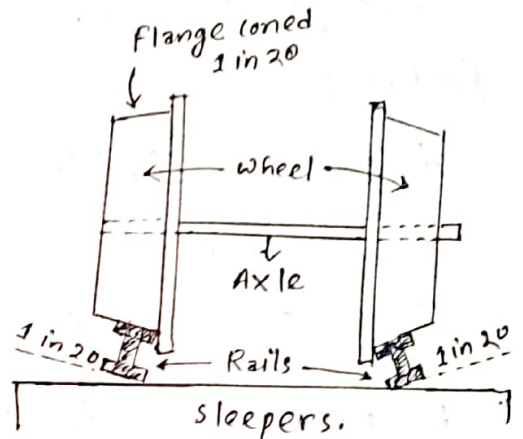 Flange coned
1 in 20
wheel
Axle
1 in 20
Rails
1 in 20
sleepers.